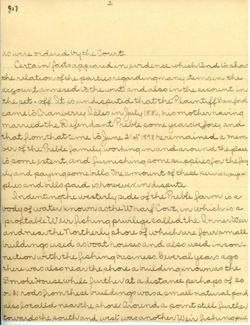 2
so were ordered by the Court.
Certain facts appeared in evidence which tend to show
the relation of the parties regarding many items in the
account annexed to the writ and also in the account in
the set-off. It is undisputed that the Plaintiff Bamford
came to Cranberry Isles in July 1882, his mother having
married the Defendant Preble some years before, and
that from that time to June 21st 1898 he remained a mem-
ber of the Preble family, working in and around the place
to some extent, and furnishing some supplies for the fam-
ily and paying some bills. The amount of these services, sup-
plies and bills paid is however in dispute.
Indenting the westerly side of the Preble farm is a
body of water known as the Wharf Cove, in which is a
profitable Weir fishing privilege called the Inner Weir
and near the Northerly shore of which are four small
buildings used as boat houses and also used in con-
nection with the fishing business. Several years ago
there was also near the shore a building known as the
Smoke House, while further at a distance perhaps of
rods from these buildings was a small natural pond
also located near the shore. Around a point still further
towards the south and west was another Weir fishing